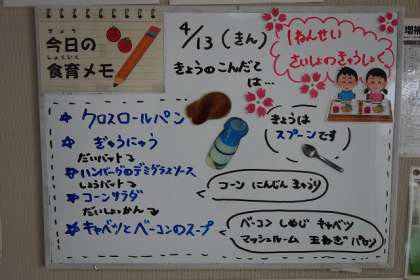 きょう
今日の
しょくいく
食育メモ
4/13(きん)
きょうのこんだて
は…
1ねんせい
さいしょのきゅうしょく
☆ クロスロールパン
☆ ぎゅうにゅう
だいバット
☆ ハンバーグのデミグラスソース
しょうバット
☆ コーンサラダ
だいしょっかん
☆ キャベツとベーコンのスープ
きょうは
スプーンです
コーン にんじん きゅうり
ベーコン しめじ キャベツ
マッシュルーム 玉ねぎ パセリ